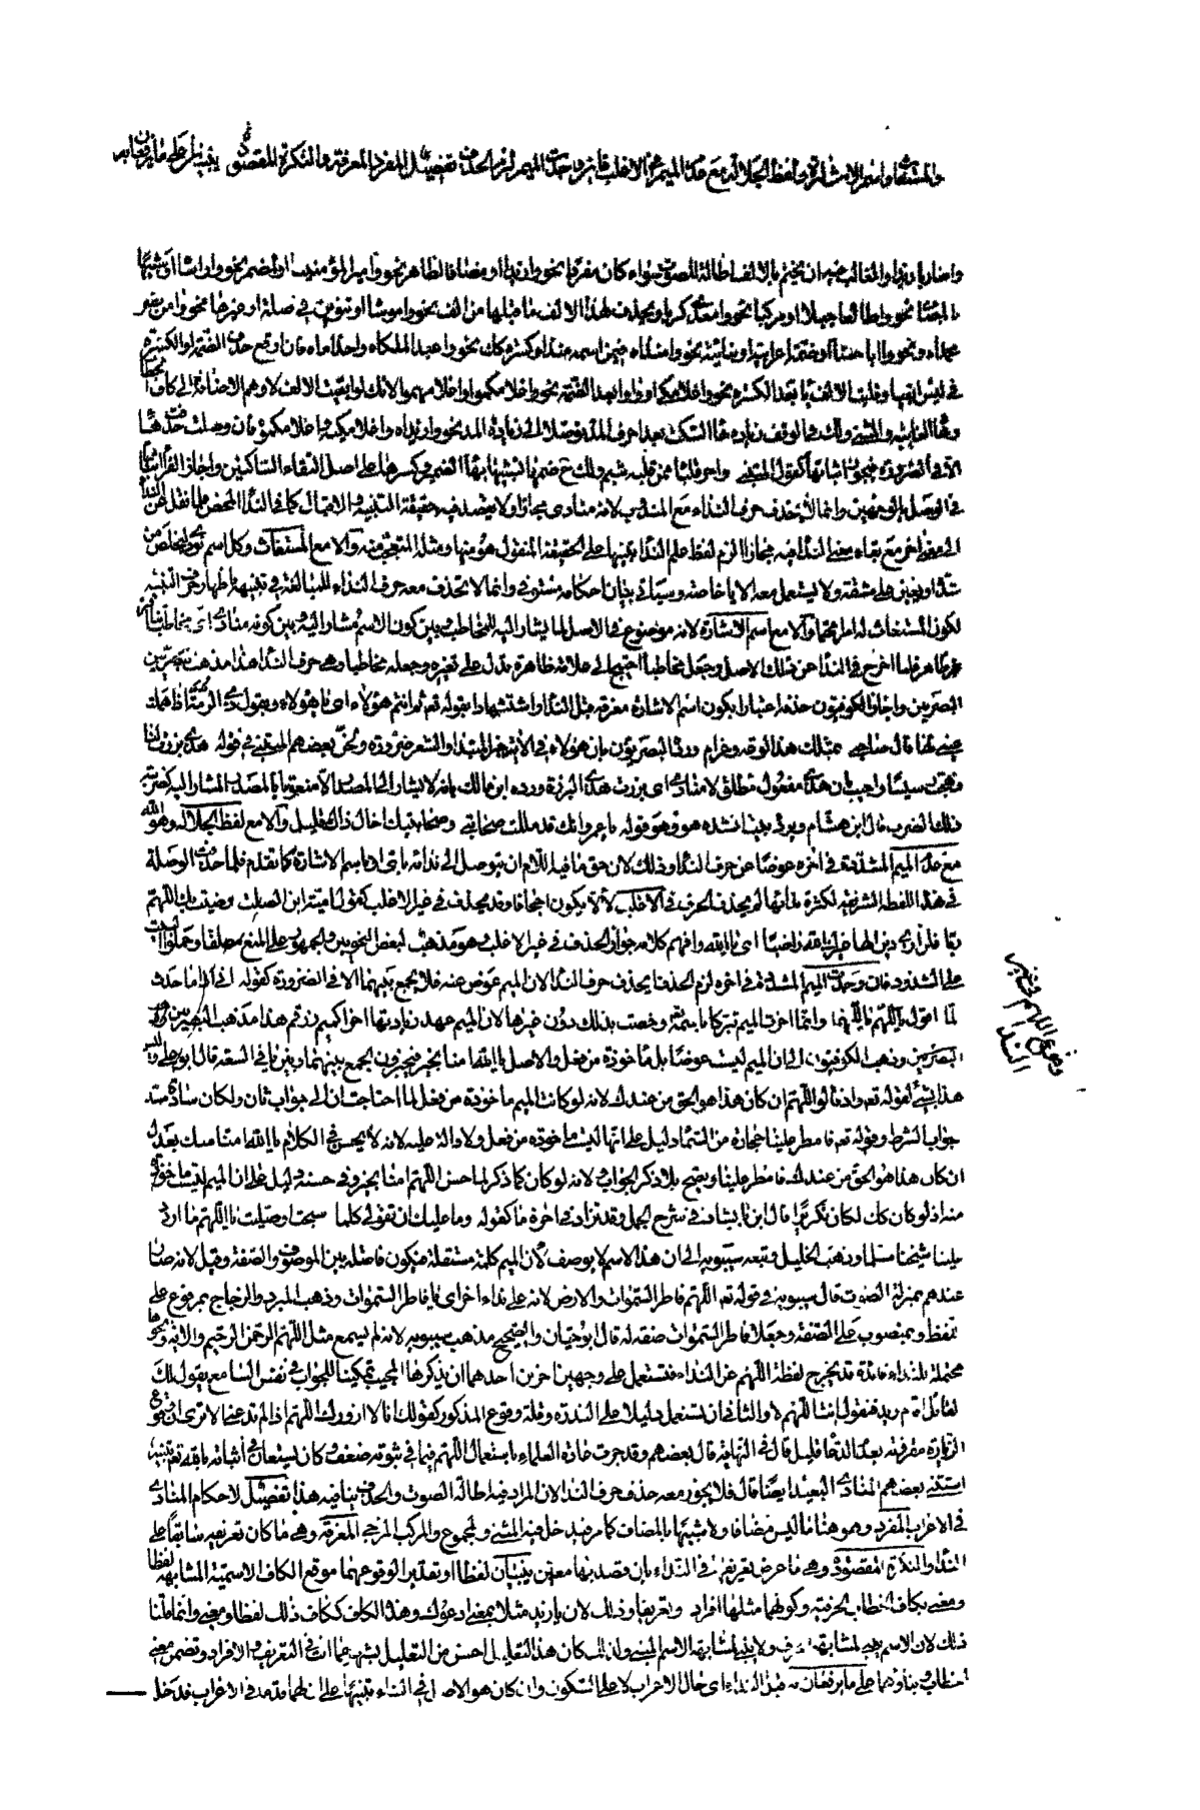 والمستغاث واسم الاشارة ولفظ الجلالة مع عدم الميم في الاغلب فان وجدت الميم لزم الحذف تفصيل المفرد المعرفة والنكرة المقصودة يبنيان على ما يرفعان به
واضاربا زيدا والغالب فيه ان يختم بالالف اطالة للصوت سواء كان مفردا نحو وازيدا او مضافا لظاهر نحو وا امير المؤمنينا او لضمير نحو
بالمضاف نحو واطالعا جبلا او مركبا نحو وا معدي كربا ويحذف لهذا الالف ما قبلها من الف نحو واموسا او تنوين في صلة او غيرها نحو وا من حفر
في لبس ابقيا وقلبت الالف ياء بعد الكسرة نحو واغلامكي او واوا بعد الضمة نحو واغلامهموا لانك لو ابقيت الالف لاوهم الاضافة الى كاف
وها الغائبة والمثنى ولك في الوقف زيادة هاء السكت بعد احرف المد توصلا الى زيادة المد نحو وازيداه واغلامكيه واغلامكموه فان وصلت حذفتها
الا في الضرورة فيجوز اثباتها كقول المتنبي واحر قلباه ممن قلبه شبم ولك ح ضمها تشبيها بهاء الضمير وكسرها على اصل التقاء الساكنين واجاز الفراء اثباتها
في الوصل بالوجهين وانما لا يحذف حرف النداء مع المندوب لانه منادى مجازا ولا يقصد فيه حقيقة التنبيه والاقبال كما في النداء المحض فلما نقل عن النداء
الى معنى اخر مع بقاء معنى النداء فيه مجازا الزم لفظ علم النداء تنبيها على الحقيقة المنقول هو منها ومثله المتعجب منه والا مع المستغاث وكل اسم نودي ليخلص من
شدة او يعين على مشقة ولا يستعمل معه الا يا خاصة وسيأتي بيان احكامه مستوفى وانما لا يحذف معه حرف النداء للمبالغة في تنبيهه باظهار حرف التنبيه
لكون المستغاث له امرا مهما والا مع اسم الاشارة لانه موضوع في الاصل لما يشار اليه للمخاطب وبين كون الاسم مشارا اليه وبين كونه منادى اي مخاطبا تنافر
ظاهر فلما اخرج في النداء عن ذلك الاصل وجعل مخاطبا احتيج الى علامة ظاهرة تدل على تغيره وجعله مخاطبا وهي حرف النداء هذا مذهب
البصريين واجاز الكوفيون حذفه اعتبارا بكون اسم الاشارة معرفة قبل النداء واستشهادا بقوله تع ثم انتم هؤلاء اي يا هؤلاء وبقول ذي الرمة اذا هملت
عيني لها قال صاحبي بمثلك هذا لوعة وغرام ورد البصريون بان هؤلاء في الآية خبر المبتدا والشعر ضرورة ولحن بعضهم المتنبي في قوله هذي برزت لنا
فهجت رسيسا واجيب بان هذي مفعول مطلق لا منادى اي برزت هذه البرزة ورده ابن مالك بانه لا يشار الى المصدر الا منعوتا بالمصدر المشار اليه كضربته
ذلك الضرب قال ابن هشام ويرد بيت انشده هو وهو قوله يا عمرو انك قد مللت صحابتي وصحابتيك اخال ذاك قليل والا مع لفظ الجلالة وهو الله
مع عدم الميم المشددة في اخره عوضا عن حرف النداء وذلك لان حق ما فيه اللام ان يتوصل الى ندائه باي او باسم الاشارة كما تقدم فلما حذفت الوصلة
في هذا اللفظ الشريف لكثرة ندائها لم يحذف الحرف في الاغلب لئلا يكون اجحافا وقد يحذف في غير الاغلب كقول امية ابن الصلت رضيت بك اللهم
ربا فلن ارى ادين الها غيرك الله راضيا اي يا الله وافهم كلامه جواز الحذف في غير الاغلب وهو مذهب لبعض النحويين والجمهور على المنع مطلقا وحملوا البيت
على الشذوذ فان وجدت الميم المشددة في اخره لزم الحذف اي حذف حرف النداء لان الميم عوض عنه فلا يجمع بينهما الا في الضرورة كقوله اني اذا ما حدث
الما اقول يا اللهم يا اللهما وانما اخرت الميم تبركا باسمه تع وخصت بذلك دون غيرها لان الميم عهد زيادتها اخرا كميم زرقم هذا مذهب البصريين
وذهب الكوفيون الى ان الميم ليست عوضا بل مأخوذة من فعل والاصل يا الله امنا بخير فيجيزون الجمع بينهما وبين يا في السعة قال ابو علي وليس
هذا بشيء لقوله تع واذ قالوا اللهم ان كان هذا هو الحق من عندك لانه لو كانت الميم مأخوذة من فعل لما احتاجت ان الى جواب ثان ولكان سادا مسد
جواب الشرط وقوله تع فامطر علينا حجارة من السماء دليل على انها ليست مأخوذة من فعل ولا دالة عليه لانه لا يحسن في الكلام يا الله امنا منك بعدل
ان كان هذا هو الحق من عندك فامطر علينا ويصح بلا ذكر الجواب لانه لو كان كما ذكر لما حسن اللهم امنا بخير وفي حسنه دليل على ان الميم ليست مأخوذة
منه اذ لو كان كك لكان تكريرا قال ابن بابشاذ في شرح الجمل وقد تزاد في اخره ما كقوله وما عليك ان تقولي كلما سبحت او صليت يا اللهم ما اردد
علينا شيخنا مسلما وذهب الخليل وتبعه سيبويه الى ان هذا الاسم لا يوصف لان الميم كلمة مستقلة فيكون فاصلة بين الموصوف والصفة وقيل لانه صار
عندهم بمنزلة الصوت قال سيبويه في قوله تع اللهم فاطر السموات والارض لانه على نداء اخر اي يا فاطر السموات وذهب المبرد والزجاج بمرفوع على
اللفظ وبمنصوب على الصفة وجعلا فاطر السموات صفة له قال ابو حيان والصحيح مذهب سيبويه لانه لم يسمع مثل اللهم الرحمن الرحيم والآية ونحوها
محتملة للنداء فائدة قد يخرج لفظة اللهم عن النداء فتستعمل على وجهين اخرين احدهما ان يذكرها المجيب تمكينا للجواب في نفس السامع يقول لك
القائل اقام زيد فتقول انت اللهم لا والثاني ان تستعمل دليلا على الندرة وقلة وقوع المذكور كقولك انا لا ازورك اللهم اذا لم تدعني الا ترى ان وقوع
الزيارة مقرونة بعدم الدعاء قليل قال في النهاية قال بعضهم وقد جرت عادة العلماء باستعمال اللهم فيما في ثبوته ضعف وكان يستعان في اثباته بالله تع تنبيه
استثنى بعضهم المنادى البعيد ايضا قال فلا يجوز معه حذف حرف النداء لان المراد فيه اطالة الصوت والحذف ينافيه هذا تفصيل لاحكام المنادى
في الاعراب المفرد وهو هنا ما ليس مضافا ولا شبيها بالمضاف كما مر فيدخل فيه المثنى والمجموع والمركب المزجي المعرفة وهي ما كان تعريفه سابقا على
النداء والنكرة المقصودة وهي ما عرض تعريفه في النداء بان قصد بها معين يبنيان لفظا او تقديرا لوقوعهما موقع الكاف الاسمية المشابهة لفظا
ومعنى بكاف الخطاب الحرفية وكونهما مثلها افرادا وتعريفا وذلك لان يا زيد مثلا بمعنى ادعوك وهذا الكاف ككاف ذلك لفظا ومعنى وانما قلنا
ذلك لان الاسم يبنى لمشابهة الحرف ولا يبنى لمشابهة الاسم المبني ولذلك كان هذا التعليل احسن من التعليل بشبههما انت في التعريف والافراد وتضمن معنى
الخطاب وبناؤهما على ما يرفعان به قبل النداء اي حال الاعراب لا على السكون وان كان هو الاصل في البناء تنبيها على ان لهما قدما في الاعراب فدخل
وقوع اللهم في غير النداء